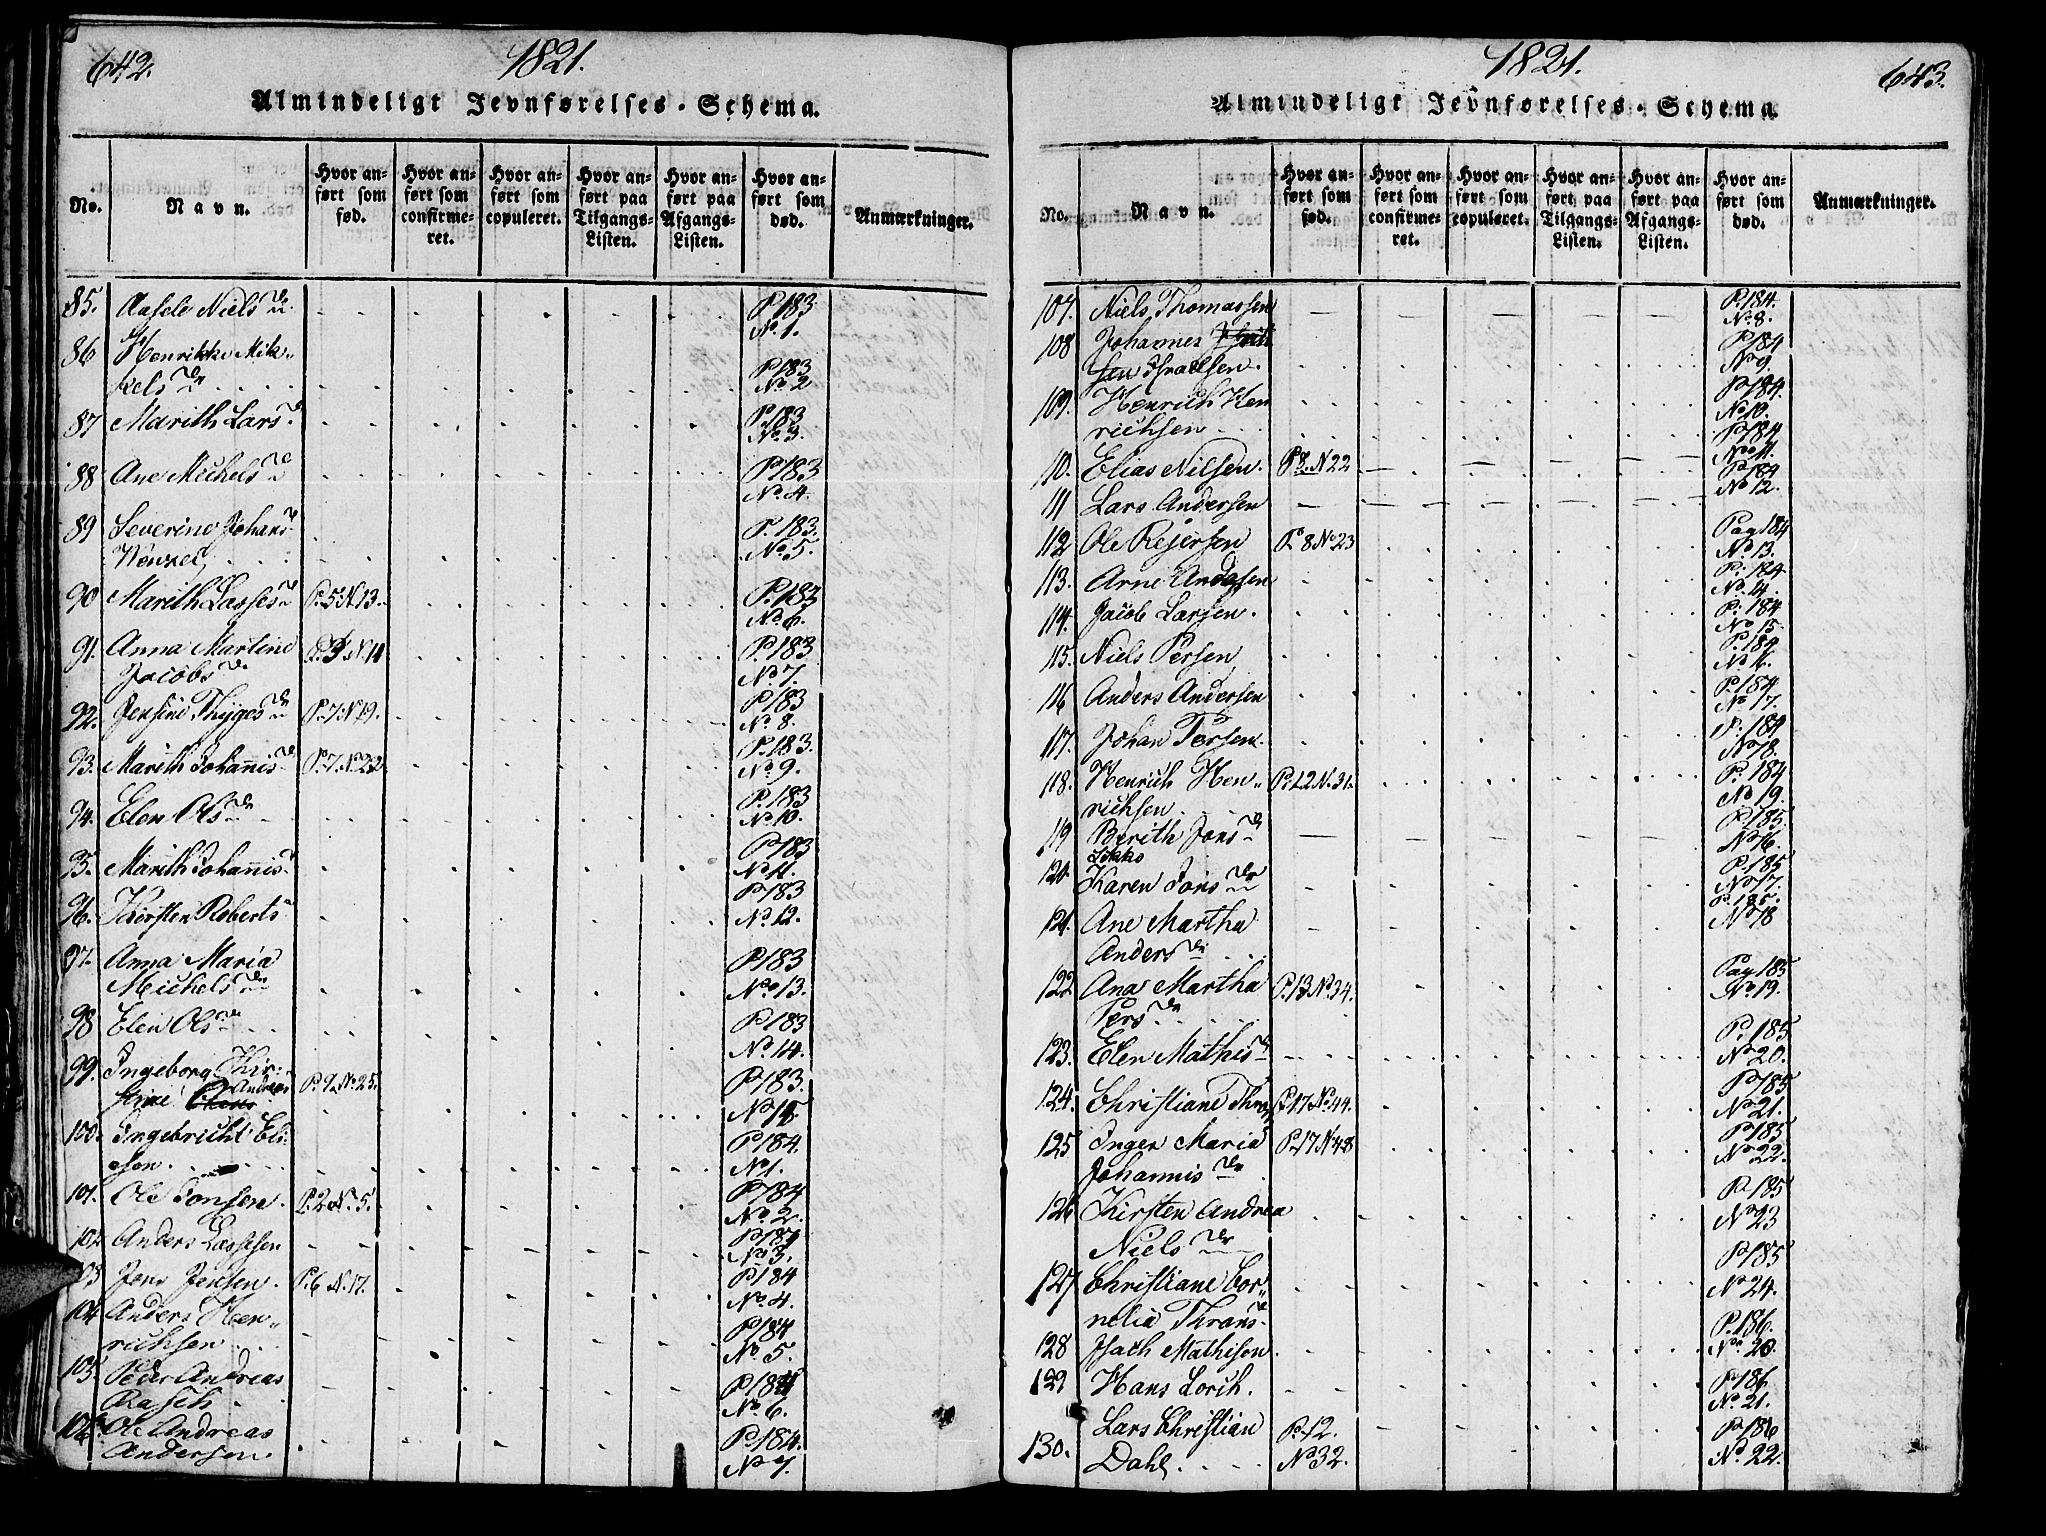 642.
1821.
Almindeligt Jevnførelses-Schema.
No.
Navn.
Hvor anført som fød.
Hvor anført som confirmeret.
Hvor anført som copuleret.
Hvor anført paa Tilgangs-Listen.
Hvor anført paa Afgangs-Listen.
Hvor anført som død.
Anmærkninger.
85. Aasele Niels Dr P. 183 No. 1.
86 Henrikke Mik-
kels Dr P. 183 No 2
87 Marith Lars Dr P. 183 No. 3.
88 Ane Michels Dr P. 183 No. 4.
89 Severine Johans
Wenzel P. 183. No. 5.
90 Marith Lasses Dr P. 5 N. 13. P. 183 No. 6.
91. Anna Martine
Jacobs Dr N. 14 P. 183 No. 7.
92. Jensine Thyges Dr P. 7. N. 19. P. 183 No. 8.
93. Marith Johannis Dr P. 7. No. 22 P. 183. No. 9.
94. Elen Ols Dr P. 183 No. 10.
95. Marith Johannis Dr P. 183 No. 11.
96. Kirsten Roberts P. 183 No. 12.
97. Anna Maria
Michels Dr P. 183 No. 13.
98 Elen Ols Dr P. 183 No. 14.
99. Ingeborg Kir-
stine Andreas P. 9. No. 25. P. 183. No. 15
100. Ingebricht Eli-
sen P. 184. No. 1.
101. Ole Jonsen. P. 2 N. 5. P. 184 No. 2.
102 Anders Lassesen P. 184 No. 3.
103 Jens Jensen. P. 6 N. 17. P. 184 No. 4.
104 Anders Hen-
richsen P. 184 No. 5.
105 Peder Andreas
Rasch P. 184 No. 6.
106 Ole Andreas
Andersen P. 184. No 7.
1821.
643.
Almindeligt Jevnførelses-Schema.
No.
Navn.
Hvor anført som fød.
Hvor anført som confirmeret.
Hvor anført som copuleret.
Hvor anført paa Tilgangs-Listen.
Hvor anført paa Afgangs-Listen.
Hvor anført som død.
Anmærkninger.
107. Niels Thomassen P. 184. No. 8.
108 Johannes
Israelsen. P. 184 No 9.
109. Henrich Hen
richsen P. 184. No. 10.
110. Elias Nilsen. P. 8. N 22 P. 184 No. 11.
111 Lars Andersen P. 184 No 12.
112 Ole Rejersen P. 8 No. 23 Pag 184 No. 13.
113. Arne Andersen P. 184 No. 14.
114. Jacob Larsen. P. 184 No 15.
115. Niels Persen P. 184 No 16.
116 Anders Andersen P. 184 No. 17.
117. Johan Persen. P. 184 No 18.
118. Henrich Hen-
richsen P. 12 N. 31. P. 184 No 19.
119 Berith Jons Dr P. 185. No 16.
120. Karen Jons Dr P. 185 No 17.
121. Ane Martha
Anders Dr P. 185. No 18
122 Ane Martha
Pers Dr P. 13 No. 34. Pag 185 No. 19.
123. Elen Mathis Dr P. 185 No 20.
124. Christiane P. 17 No. 44. P. 185 No 21.
125 Inger Maria
Johannis Dr P. 17 N 48 P. 185 No 22.
126 Kirsten Andrea
Niels Dr P. 185 No 23
127 Christiane Cor-
nelia Thrans Dr P. 185 No 24.
128 Isach Mathisen. P. 186. No. 20.
129 Hans Lorch. P. 186 No. 21.
130. Lars Christian
Dahl. P. 12. No 32. P. 186 No. 22.